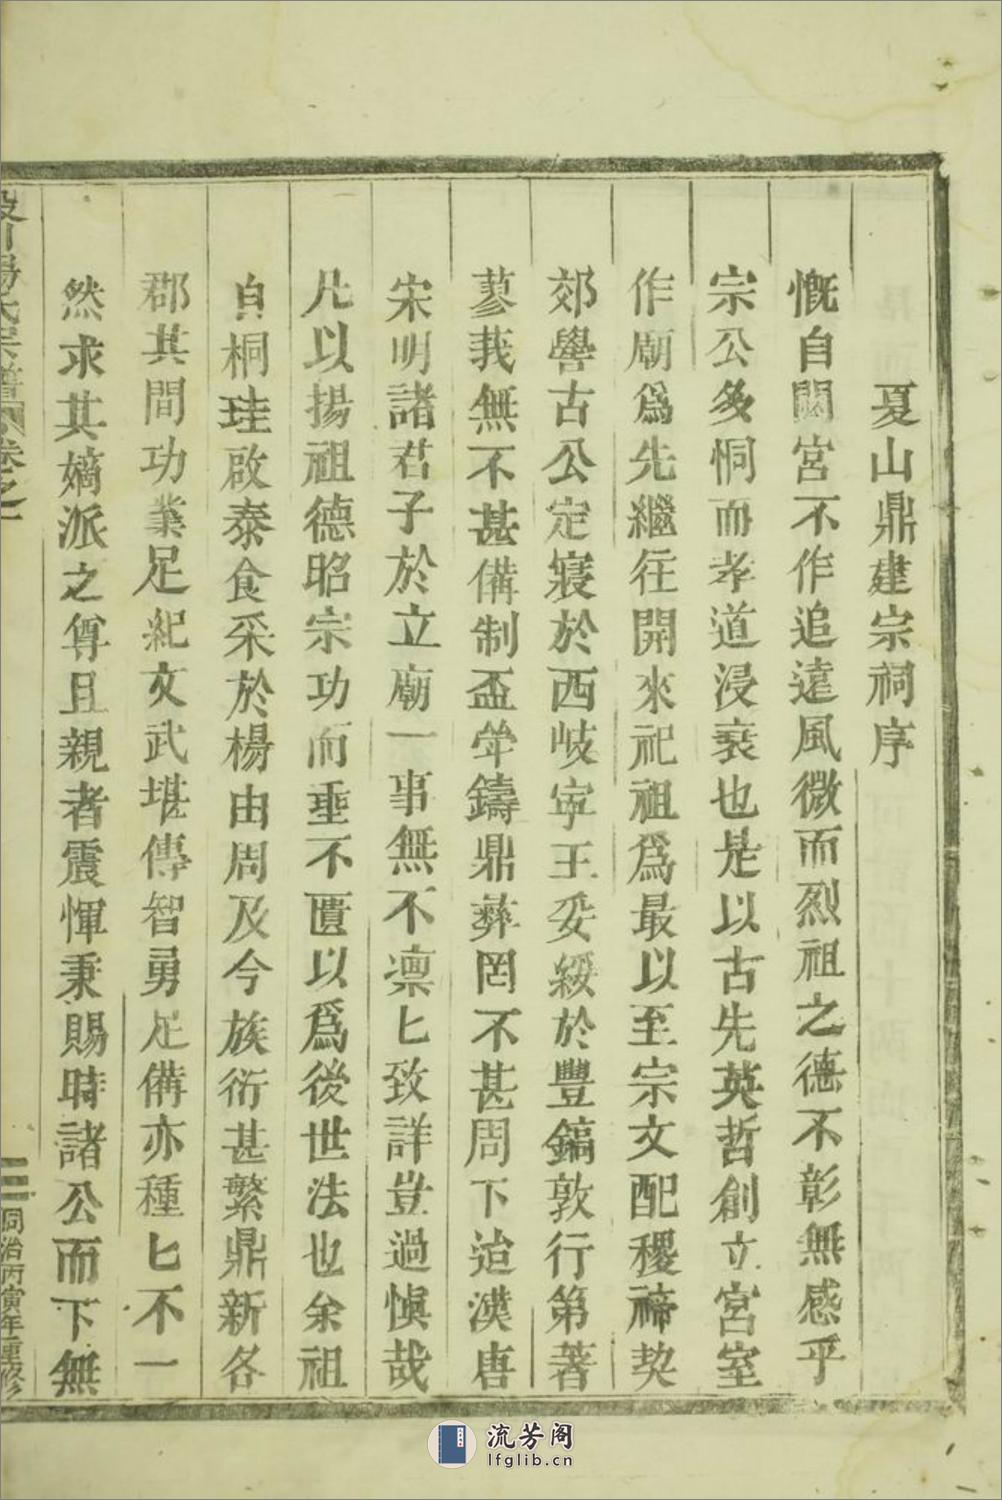 夏山鼎建宗祠序
慨自閟宮不作追遠風微而烈祖之德不彰無感乎
宗公多恫而孝道浸衰也是以古先英哲創立宮室
作廟爲先繼往開來祀祖爲最以至宗文配稷禘契
郊嚳古公定寢於西岐寍王妥綏於豐鎬敦行第著
蓼莪無不甚備制盃斚鑄鼎彝罔不甚周下迨漢唐
宋明諸君子於立廟一事無不凛匕致詳豈過愼哉
凡以揚祖德昭宗功而垂不匱以爲後世法也余祖
自桐珪啟泰食采於楊由周及今族衍甚繁鼎新各
郡其間功業足紀文武堪傳智勇足備亦種匕不一
然求其嫡派之尊且親者震惲秉賜時諸公而下無
川楊氏宗譜 卷之一
三 同治丙寅年重修
流芳阁
lfglib.cn